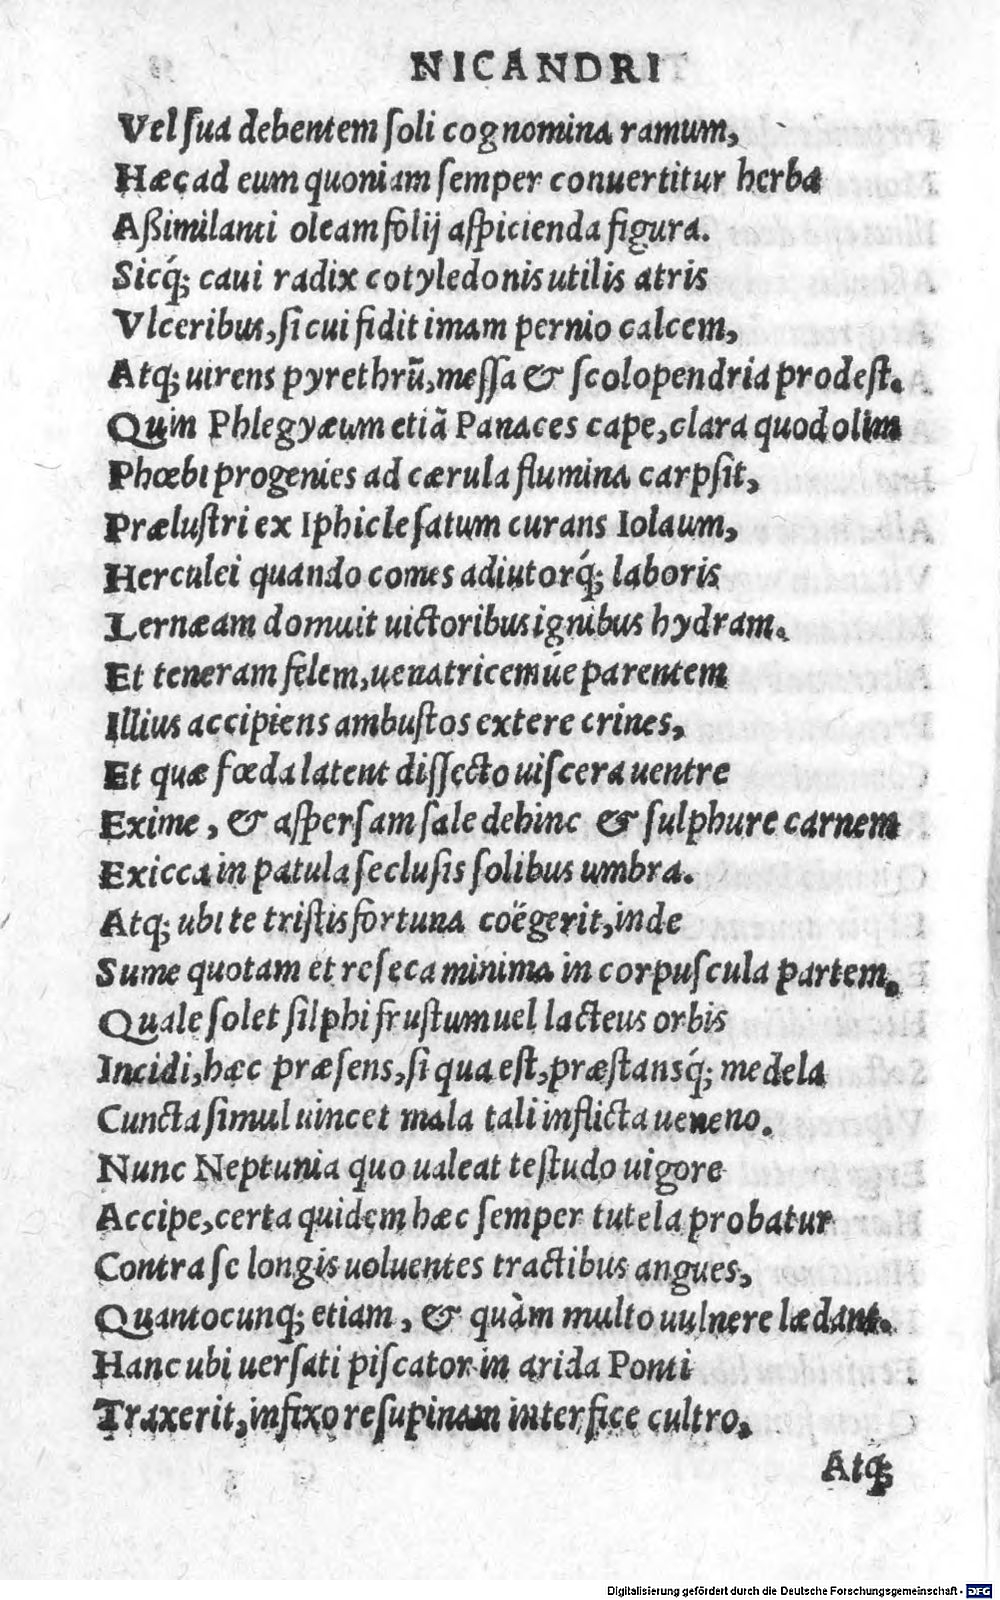 NICANDRI
Vel ſua debentem ſoli cognomina ramum,
Hæc ad eum quoniam ſemper conuertitur herba
Aßimilanti oleam folij aſpicienda figura.
Sicq́; caui radix cotyledonis utilis atris
Vlceribus, ſi cui fidit imam pernio calcem,
Atq; uirens pyrethrũ, meſſa & ſcolopendria prodeſt.
Quin Phlegyæum etiã Panaces cape, clara quod olim
Phœbi progenies ad cærula flumina carpſit,
Præluſtri ex Iphicle ſatum curans Iolaum,
Herculei quando comes adiutorq́; laboris
Lernæam domuit uictoribus ignibus hydram.
Et teneram felem, uenatricemúe parentem
Illius accipiens ambuſtos extere crines,
Et quæ fœda latent diſſecto uiſcera uentre
Exime, & aſperſam ſale dehinc & ſulphure carnem
Exicca in patula ſecluſis ſolibus umbra.
Atq; ubi te triſtis fortuna coëgerit, inde
Sume quotam et reſeca minima in corpuſcula partem,
Quale ſolet ſilphi fruſtum uel lacteus orbis
Incidi, hæc præſens, ſi qua eſt, præſtansq́; medela
Cuncta ſimul uincet mala tali inflicta ueneno.
Nunc Neptunia quo ualeat teſtudo uigore
Accipe, certa quidem hæc ſemper tutela probatur
Contra ſe longis uoluentes tractibus angues,
Quantocunq; etiam, & quàm multo uulnere lædant.
Hanc ubi uerſati piſcator in arida Ponti
Traxerit, infixo reſupinam interfice cultro,
Atq;
Digitalisierung gefördert durch die Deutsche Forschungsgemeinschaft - DFG